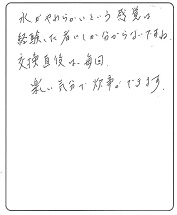 水がやわらかいという感覚は
経験した者にしか分からないですね
交換直後は毎回
楽しい気分で炊事ができます。